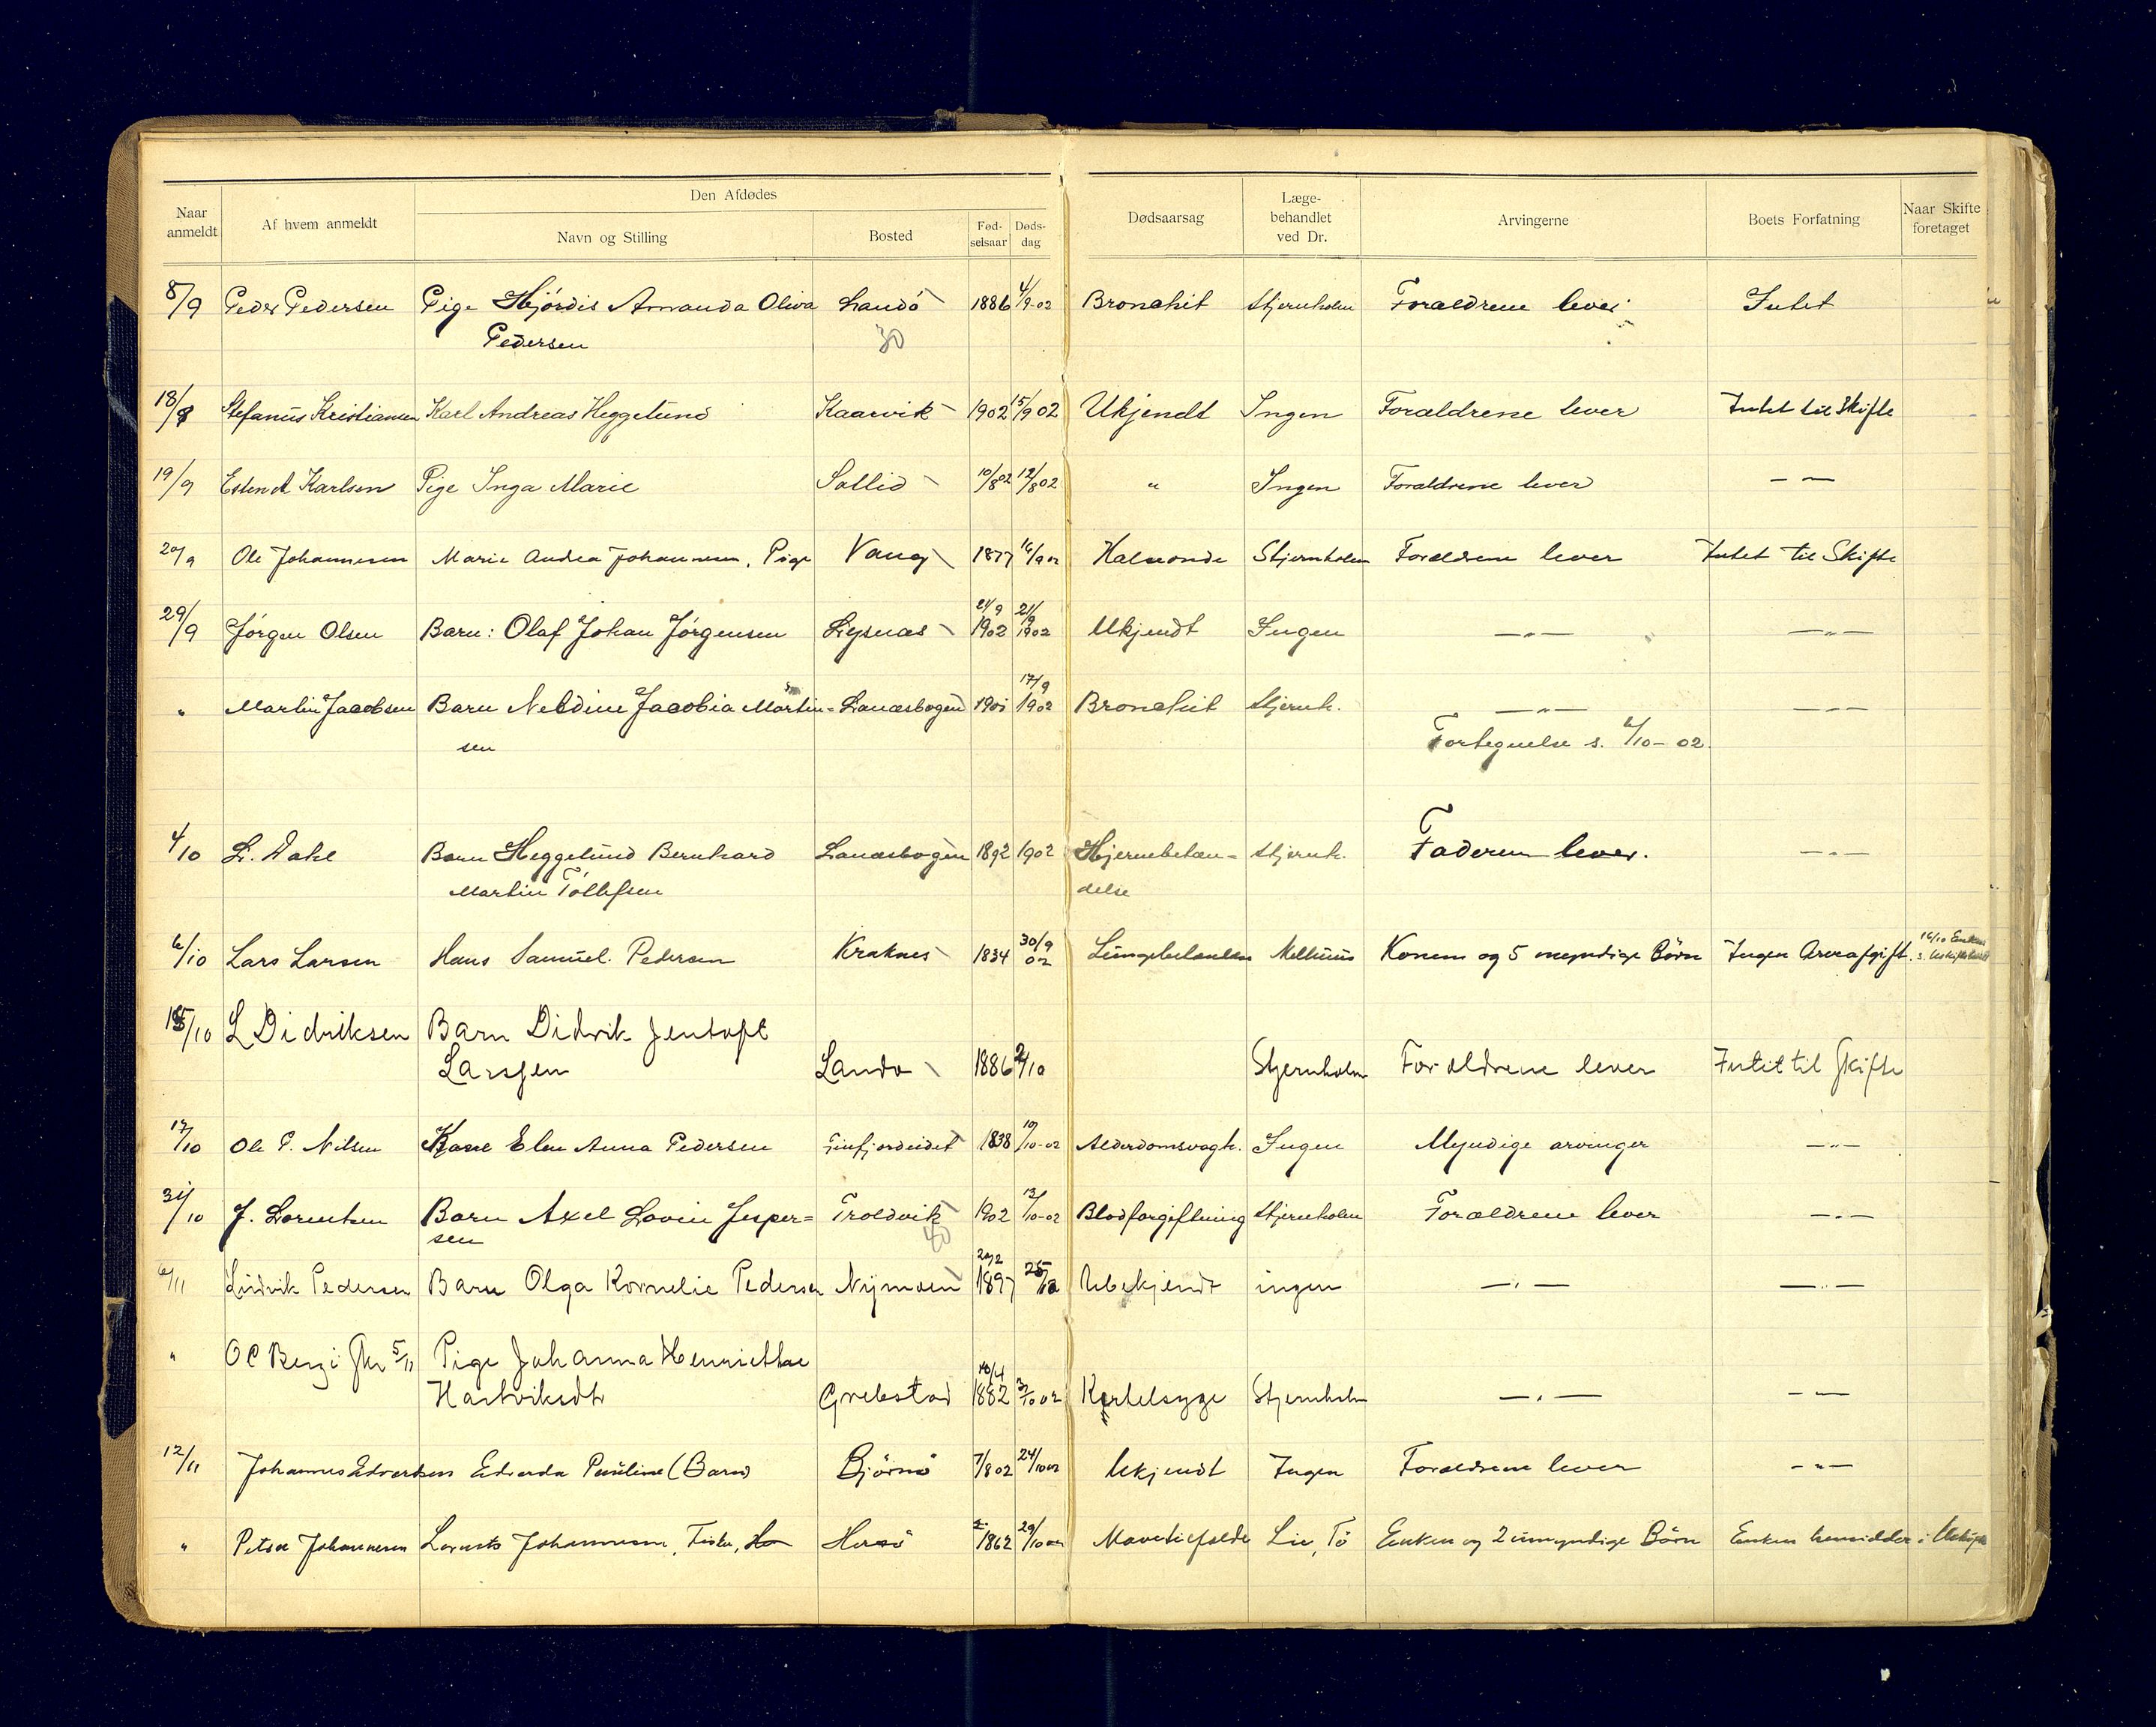 Den Afdødes
Naar anmeldt | Af hvem anmeldt | Navn og Stilling | Bosted | Fød-selsaar | Døds-dag | Dødsaarsag | Læge-behandlet ved Dr. | Arvingerne | Boets Forfatning | Naar Skifte foretaget
8/9 Peder Pedersen Pige Hjördis Amanda Oliva Landö 1886 4/9-02 Bronchit Stjernholm Forældrene lever Intet
Pedersen 30
18/9 Stefanus Kristiansen Karl Andreas Heggelund Kaarvik 1902 15/9 02 Ukjendt Ingen Forældrene lever Intet til Skifte
19/9 Esten A Karlsen Pige Inga Marie Sollid 10/8 02 12/8 02 " Ingen Forældrene lever — —
20/9 Ole Johannesen Marie Andrea Johannesen, Pige Vang 1877 16/9 02 Stjernholm Forældrene lever Intet til Skifte
29/9 Jörgen Olsen Barn: Olaf Johan Jörgensen Lysnæs 21/9 1902 21/9 1902 Ukjendt Ingen —"— —"—
" Martin Jacobsen Barn Neldine Jacobia Martin= Lanæsbogen 1901 17/9 1902 Bronchit Stjernh. —"— —"—
sen Fortegnelse s. 6/10-02.
4/10 L. Dahl Barn Heggelund Bernhard Lanæsbogen 1892 1902 Hjernebetæn= Stjernh. Faderen lever. —"—
Martin Tollefsen delse
6/10 Lars Larsen Hans Samuel Pedersen Kraknes 1834 30/9 02 Melhuus Konen og 5 myndige Börn Ingen Arveafgift. 16/10 Enken
15/10 L Didriksen Barn Didrik Jentoft
Larssen Lando 1886 2/10 Stjernholm Forældrene lever Intet til Skifte
17/10 Ole P. Nilsen Kone Elen Anna Pedersen Finfjordeidet 1838 10/10-02 Alderdomsvagh. Ingen Myndige arvinger —"—
31/10 J. Lorentsen Barn Axel Lovin Jesper= Troldvik 1902 12/10-02 Blodforgiftning Stjernholm Forældrene lever —"—
sen
6/11 Ludvik Pedersen Barn Olga Kornelie Pedersen Nymoen 1897 25/10 Ubekjendt ingen —"— —"—
" 5/11 Pige Johanna Henriette
Hartviksdtr Grebstad 1882 3/10 02 Kjertelsyge Stjernholm —"— — —
12/11 Johannes Edvardsen Edvarda Pauline (Barn) Björnö 7/8 02 24/10 02 Ukjendt Ingen Forældrene lever —"—
" Petra Johannesen Lorents Johannesen, Fisker, Hersö 1862 29/10 02 Enken og 2 umyndige Börn Enken hensidder i Uskifte